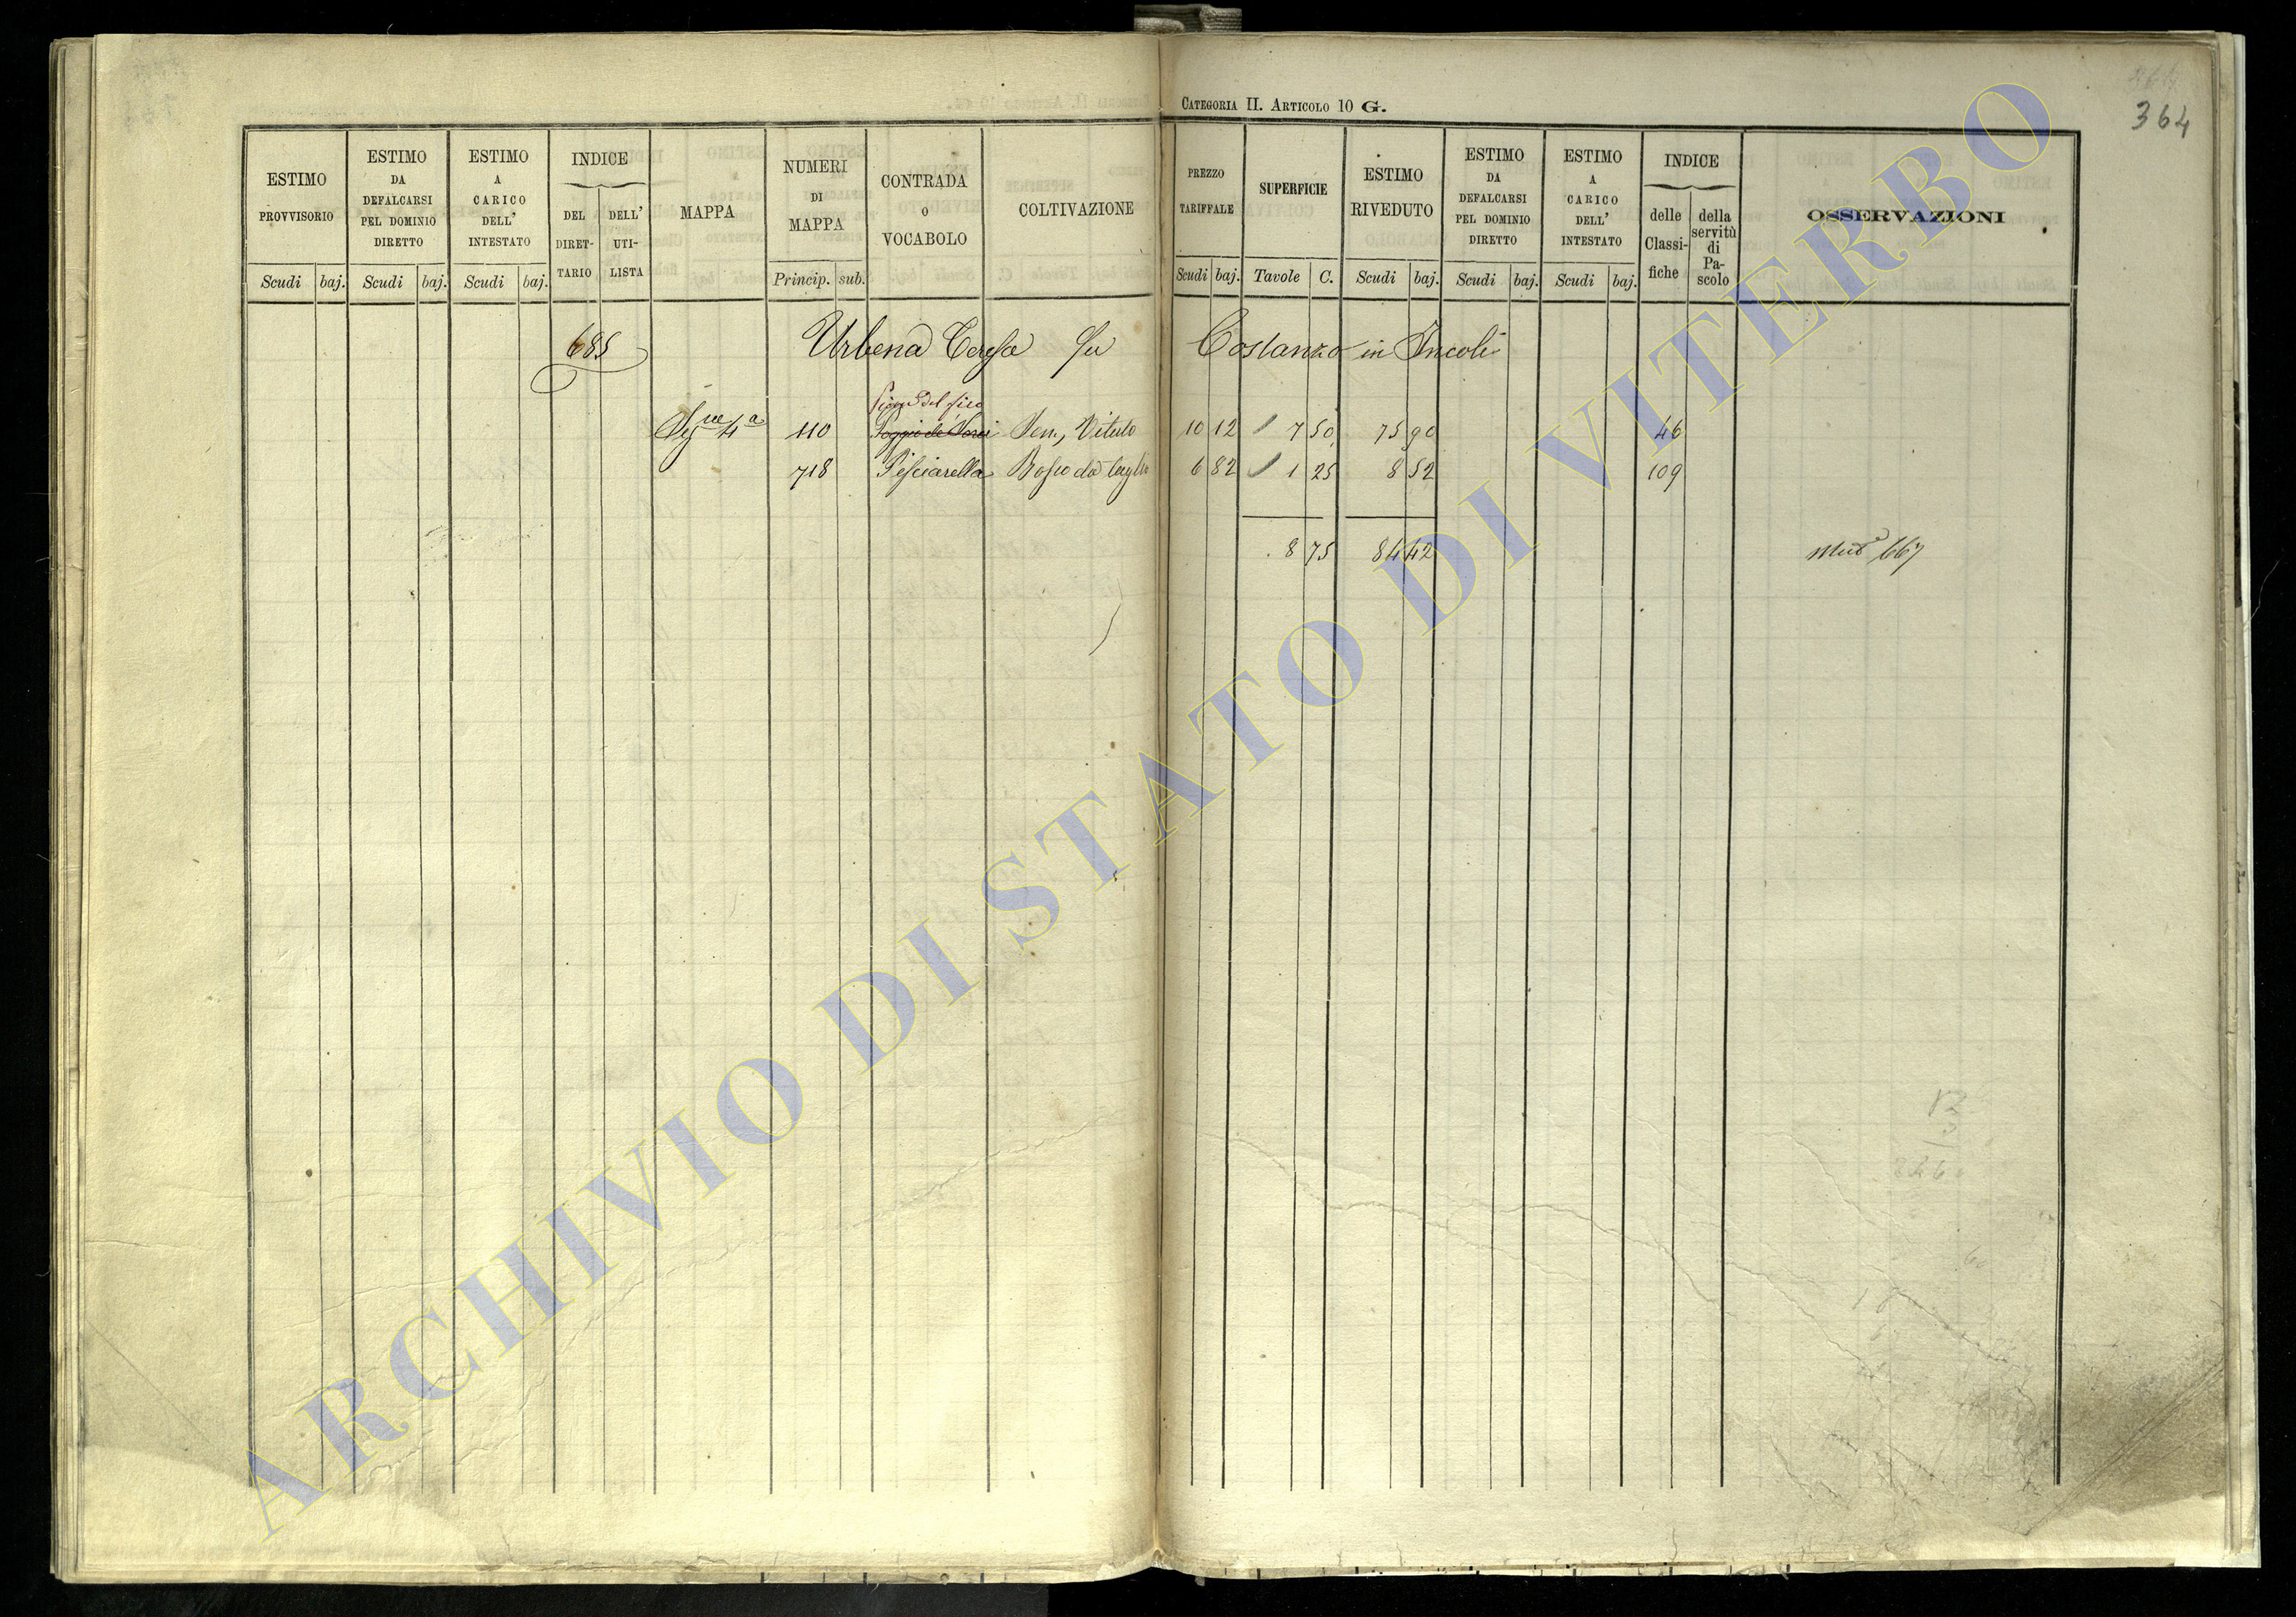 364
CATEGORIA II. ARTICOLO 10 G.
ESTIMO PROVVISORIO Scudi baj.
ESTIMO DA DEFALCARSI PEL DOMINIO DIRETTO Scudi baj.
ESTIMO A CARICO DELL' INTESTATO Scudi baj.
INDICE DEL DIRETTARIO DELL' UTILISTA
MAPPA
NUMERI DI MAPPA Princip. sub.
CONTRADA O VOCABOLO
COLTIVAZIONE
PREZZO TARIFFALE Scudi baj.
SUPERFICIE Tavole C.
ESTIMO RIVEDUTO Scudi baj.
ESTIMO DA DEFALCARSI PEL DOMINIO DIRETTO Scudi baj.
ESTIMO A CARICO DELL' INTESTATO Scudi baj.
INDICE delle Classifiche della servitù di Pascolo
OSSERVAZIONI
685 Urbena Teresa fu Costanzo in Incoli
del fico
Sez.ne 4a 110 Poggio de Sem. Vitato 10 12 7 50 75 90 46
718 Pisciarella Bosco da taglio 6 82 1 25 8 52 109
8 75 84 42 Mut.a 667
ARCHIVIO DI STATO DI VITERBO